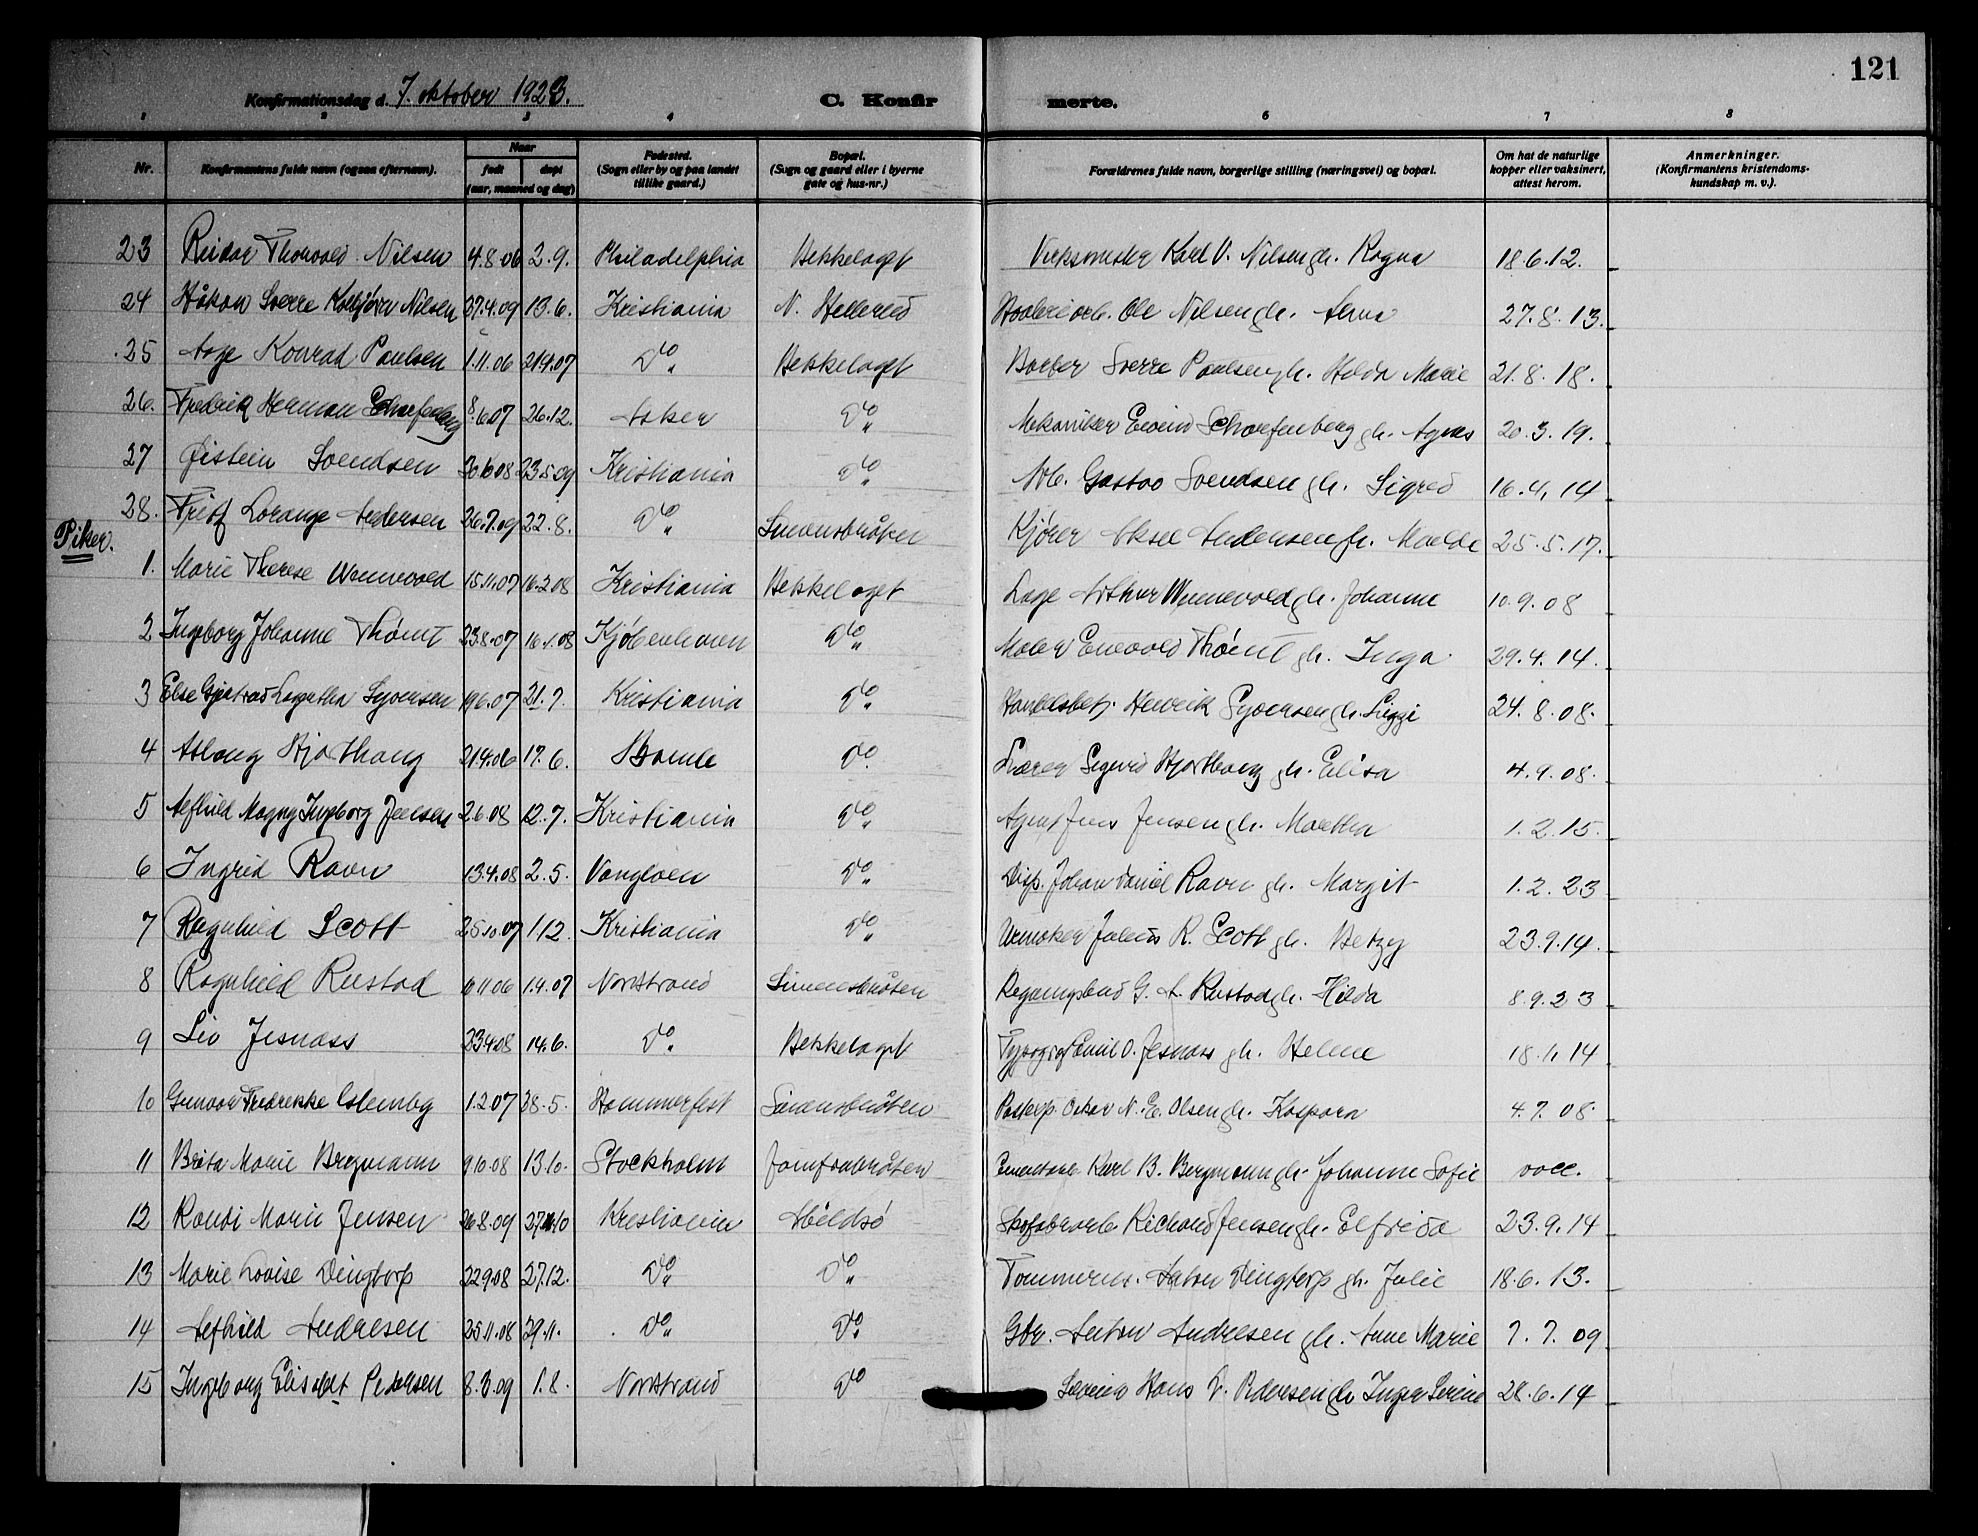 121
Konfirmationsdag d. 7. oktober 1923. C. Konfirmerte.
1 2 3 4 6 7 8
Nr. Konfirmantens fulde navn (ogsaa efternavn). Naar født døpt (aar, maaned og dag) Fødested. (Sogn eller by og paa landet tillike gaard.) Bopæl. (Sogn og gaard eller i byerne gate og hus-nr.) Forældrenes fulde navn, borgerlige stilling (næringsvei) og bopæl. Om hat de naturlige kopper eller vaksinert, attest herom. Anmerkninger. (Konfirmantens kristendomskundskap m. v.).
23 Reidar Thorvald Nilsen 4.8.06 2.9. Philadelphia Bekkelaget Verksmester Karl V. Nilsen gh. Ragna 18.6.12.
24 Håkon Sverre Kolbjörn Nilsen 27.4.09 13.6. Kristiania N. Hellerud Ole Nilsen gh. Anna 27.8.13.
25 Aage Konrad Paulsen 1.11.06 21.4.07 Do Bekkelaget Barber Sverre Paulsen gh. Hilda Marie 21.8.18.
26. Fredrik Herman Scharfenberg 8.6.07 26.12. Asker Do Mekaniker Eivind Scharfenberg gh. Agnes 20.3.19.
27 Øistein Svendsen 23.5.09 Kristiania Do Arb. Gustav Svendsen gh. Sigrid 16.4.14
28. Lorange Andersen 26.7.09 22.8. Do Simensbråten Kjører Aksel Andersen gh. 25.5.17.
Piker.
1. Marie Therese Wennevold 15.11.07 16.2.08 Kristiania Bekkelaget Arthur Wennevold gh. Johanne 10.9.08
2 Ingeborg Johanne 23.8.07 16.1.08 Kjøbenhavn Do Maler gh. Inga 29.4.14.
3 Else Syversen 19.6.07 21.7. Kristiania Do Handelsbetj. Henrik Syversen gh. 24.8.08.
4 Aslaug Hjorthaug 21.4.06 17.6. Bamle Do Lærer Sigurd Hjorthaug gh. Elisa 4.9.08.
5 Alfhild Magny Ingborg Jensen 2.6.08 12.7. Kristiania Do Agent Jens Jensen gh. Martha 1.2.15.
6 Ingrid Ravn 13.4.08 2.5. Do Disp. Johan Daniel Ravn gh. Margit 1.2.23
7 Ragnhild Scott 25.10.07 1.12. Kristiania Do Urmaker Julius R. Scott gh. Betzy 23.9.14.
8 Ragnhild Rustad 1.4.07 Nordstrand Simensbråten G. A. Rustad gh. Hilda 8.9.23
9 Liv Jesnæss 23.4.08 14.6. Do Bekkelaget Typograf Emil O. Jesnæss gh. Helene 18.1.14
10 Gunvor Fredrikke 1.2.07 28.5. Hammerfest Simensbråten Postexp. Oskar N. E. Olsen gh. Kaspara 4.7.08.
11 Brita Marie Bergmann 9.10.08 13.10. Stockholm Jomfrubråten Karl B. Bergmann gh. Johanne Sofie vacc.
12 Randi Marie Jensen 26.8.09 27.10 Kristiania Richard Jensen gh. Elfrida 23.9.14
13 Marie Lovise Dingtorp 22.9.08 27.12. Do Do Tømmerm. Anton Dingtorp gh. Julie 18.6.13.
14 Alfhild Andresen 25.11.08 29.11. Do Do Gbr. Anton Andresen gh. Anne Marie 7.7.09
15 Ingeborg Elisabet Pedersen 8.3.09 1.8. Nordstrand Do Hans P. Pedersen gh. Inger Serine 28.6.14